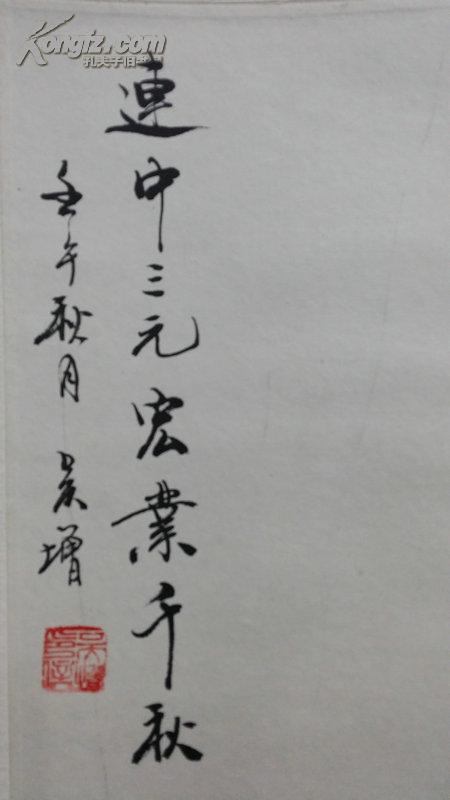 Kongfz.com
孔夫子旧书网
連中三元宏業千秋
壬午秋月 吴增